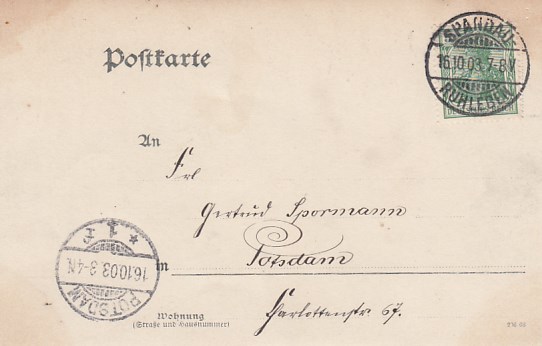 Postkarte
SPANDAU
16.10.03.7-8V
RUHLEBEN
An
Frl
Gertrud Spormann
in Potsdam
* 1. P
16.10.03.3-4N.
POTSDAM
Charlottenstr 67.
Wohnung
(Straße und Hausnummer)